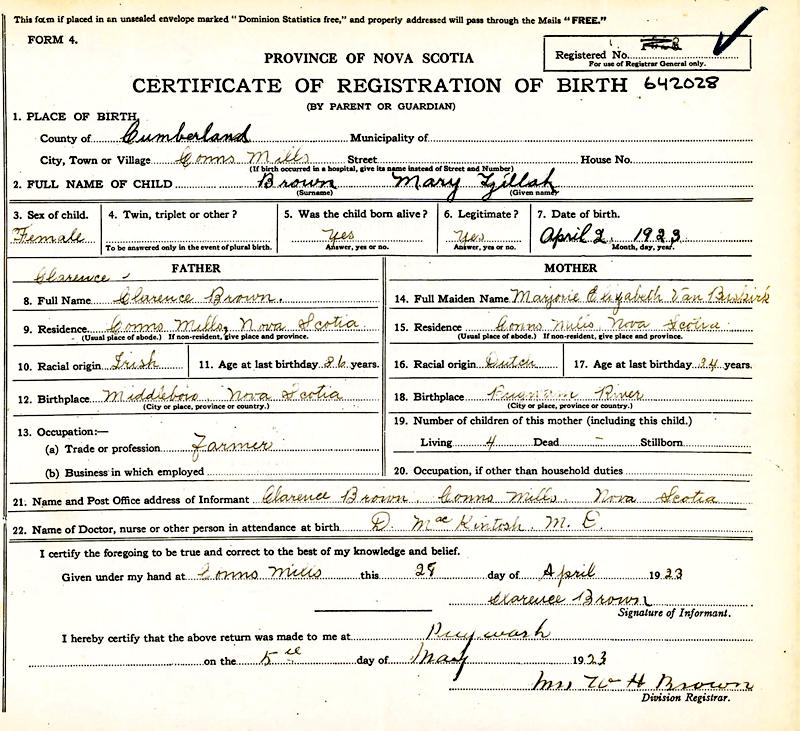 This form if placed in an unsealed envelope marked "Dominion Statistics free," and properly addressed will pass through the Mails "FREE."
FORM 4.
PROVINCE OF NOVA SCOTIA
Registered No.
For use of Registrar General only.
CERTIFICATE OF REGISTRATION OF BIRTH 642028
(BY PARENT OR GUARDIAN)
1. PLACE OF BIRTH,
County of Cumberland Municipality of
City, Town or Village Conns Mills Street House No.
(If birth occurred in a hospital, give its name instead of Street and Number)
2. FULL NAME OF CHILD Brown Mary Zillah
(Surname) (Given name)
3. Sex of child. 4. Twin, triplet or other? 5. Was the child born alive? 6. Legitimate? 7. Date of birth.
Female Yes Yes April 2, 1923
To be answered only in the event of plural birth. Answer, yes or no. Answer, yes or no. Month, day, year.
FATHER MOTHER
Clarence
8. Full Name Clarence Brown. 14. Full Maiden Name Marjorie Elizabeth Van Buskirk
9. Residence Conns Mills, Nova Scotia 15. Residence Conns Mills, Nova Scotia
(Usual place of abode.) If non-resident, give place and province. (Usual place of abode.) If non-resident, give place and province.
10. Racial origin Irish 11. Age at last birthday 36 years. 16. Racial origin Dutch 17. Age at last birthday 34 years.
12. Birthplace Middleboro, Nova Scotia 18. Birthplace River
(City or place, province or country.) (City or place, province or country.)
13. Occupation:— 19. Number of children of this mother (including this child.)
(a) Trade or profession Farmer Living 4 Dead – Stillborn
(b) Business in which employed 20. Occupation, if other than household duties
21. Name and Post Office address of Informant Clarence Brown. Conns Mills Nova Scotia
22. Name of Doctor, nurse or other person in attendance at birth D. MacKintosh M.
I certify the foregoing to be true and correct to the best of my knowledge and belief.
Given under my hand at Conns Mills this 28 day of April 1923
Clarence Brown
Signature of Informant.
I hereby certify that the above return was made to me at Pugwash
on the 5th day of May 1923
Mrs W H Brown
Division Registrar.